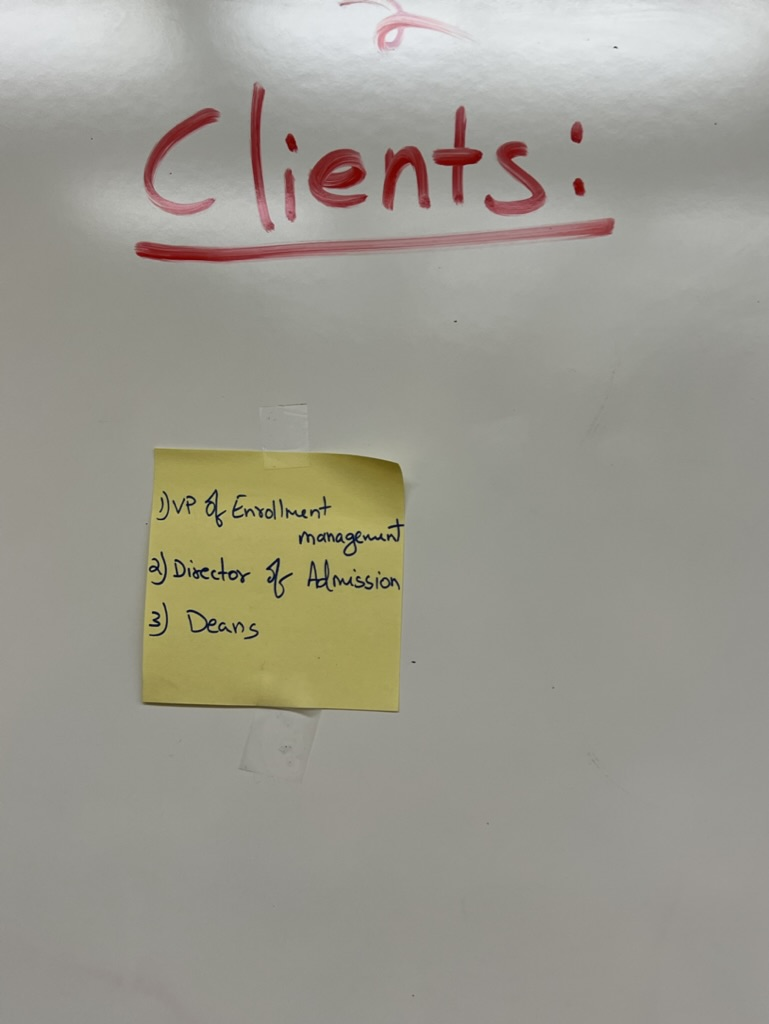 Clients:
1) VP of Enrollment
management
2) Director of Admission
3) Deans